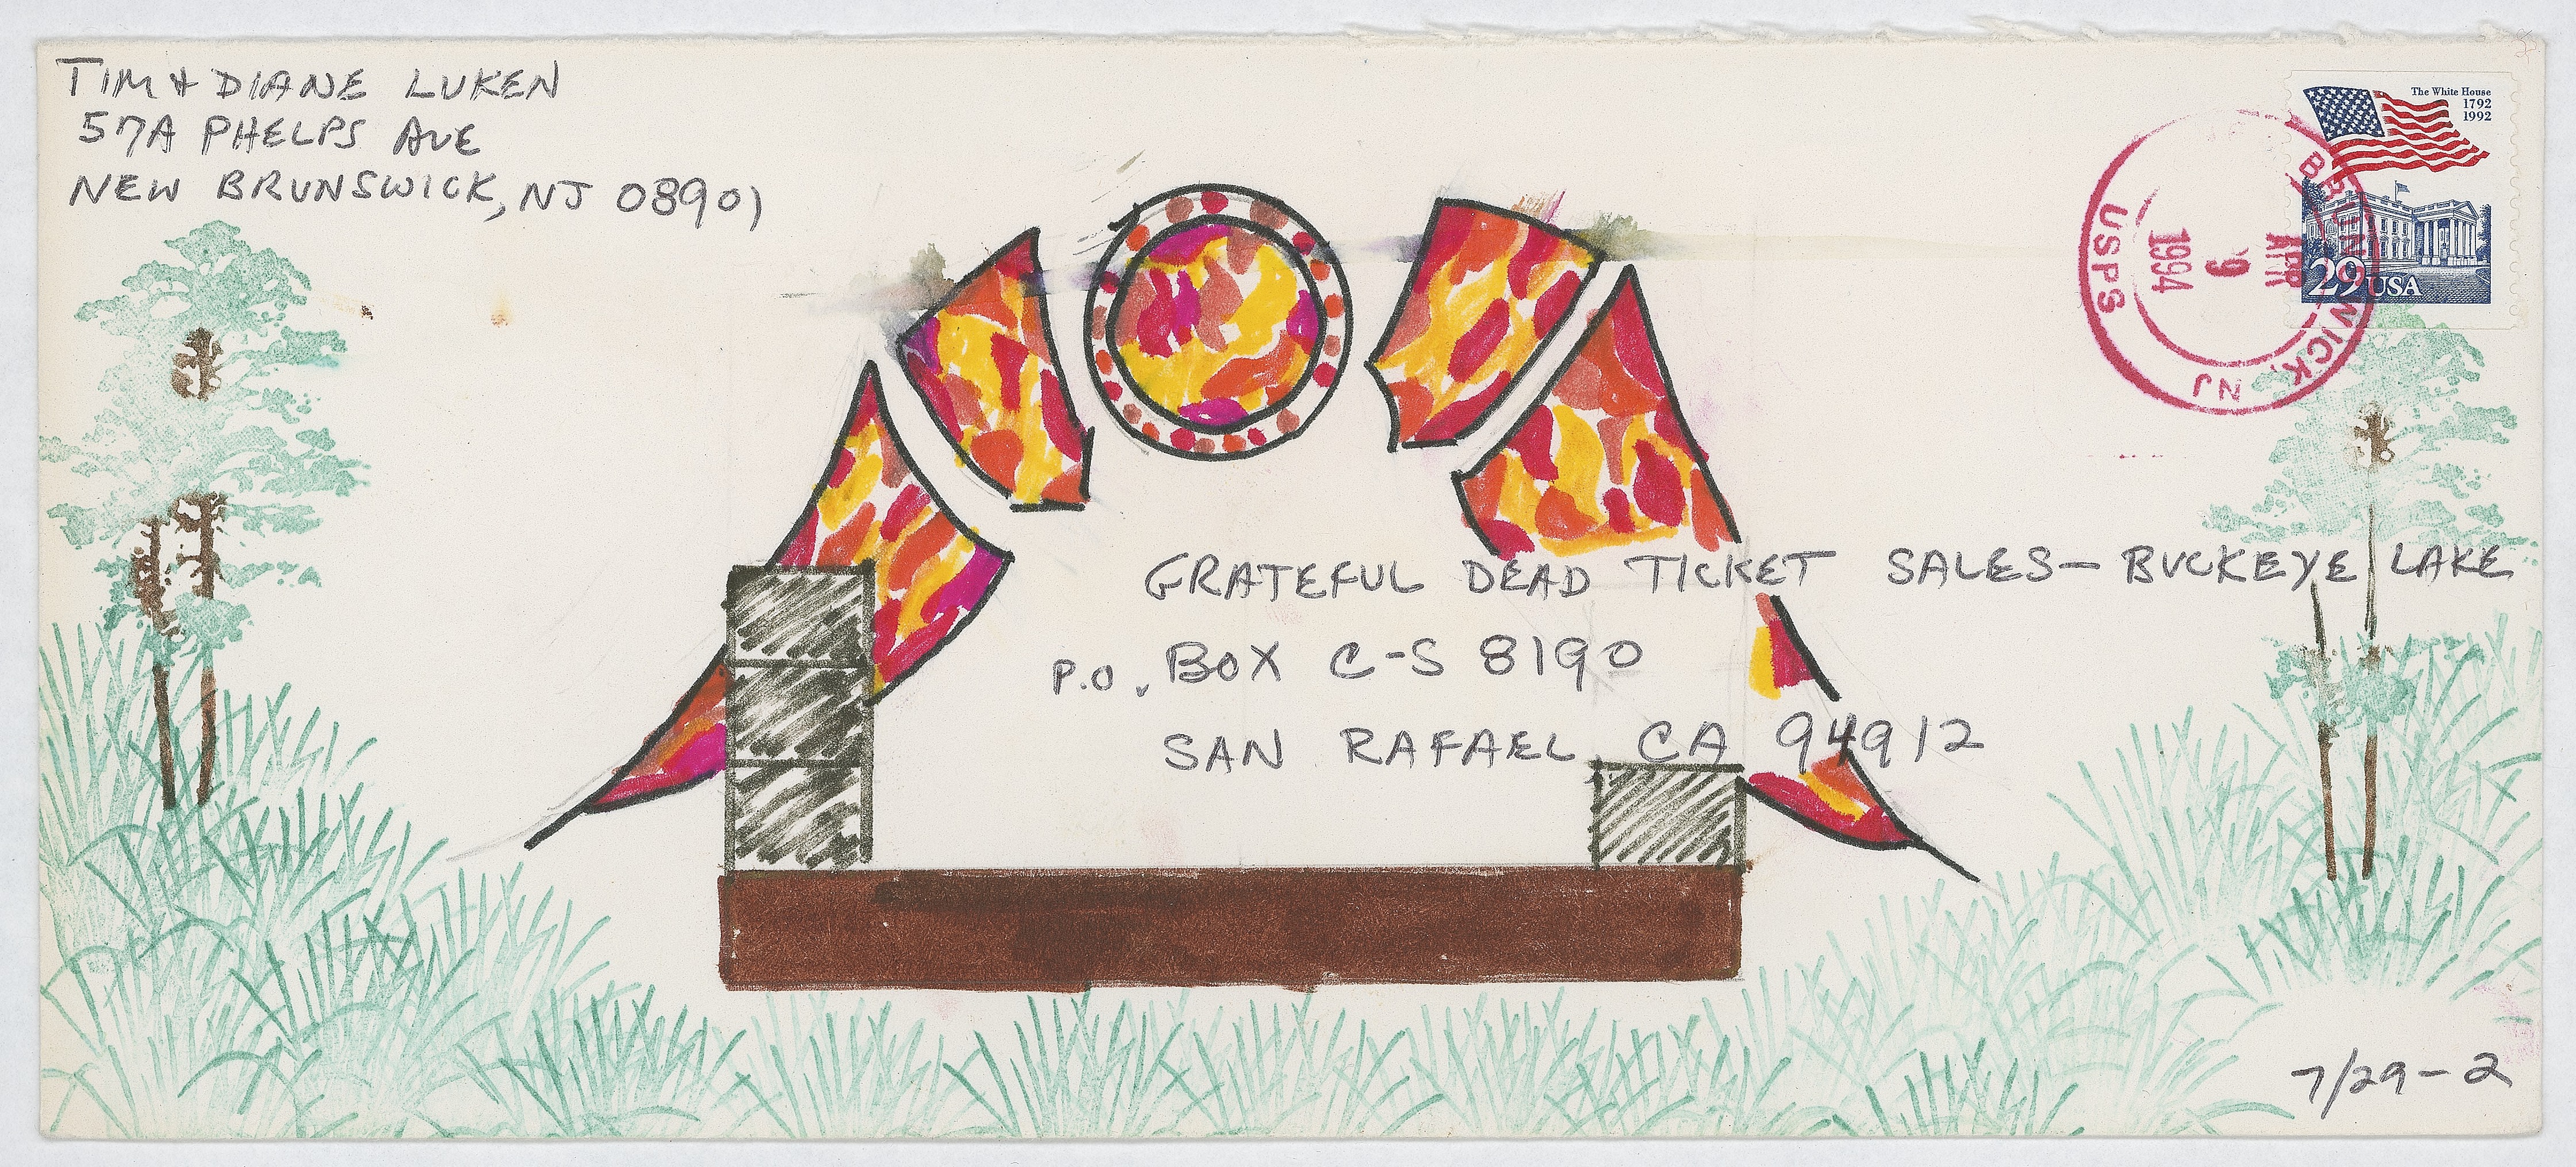 TIM + DIANE LUKEN
57A PHELPS AVE
NEW BRUNSWICK, NJ 08901
The White House
1792
1992
29 USA
BRUNSWICK, NJ
APR
9
1994
USPS
GRATEFUL DEAD TICKET SALES - BUCKEYE LAKE
P.O. BOX C-S 8190
SAN RAFAEL, CA 94912
7/29-2